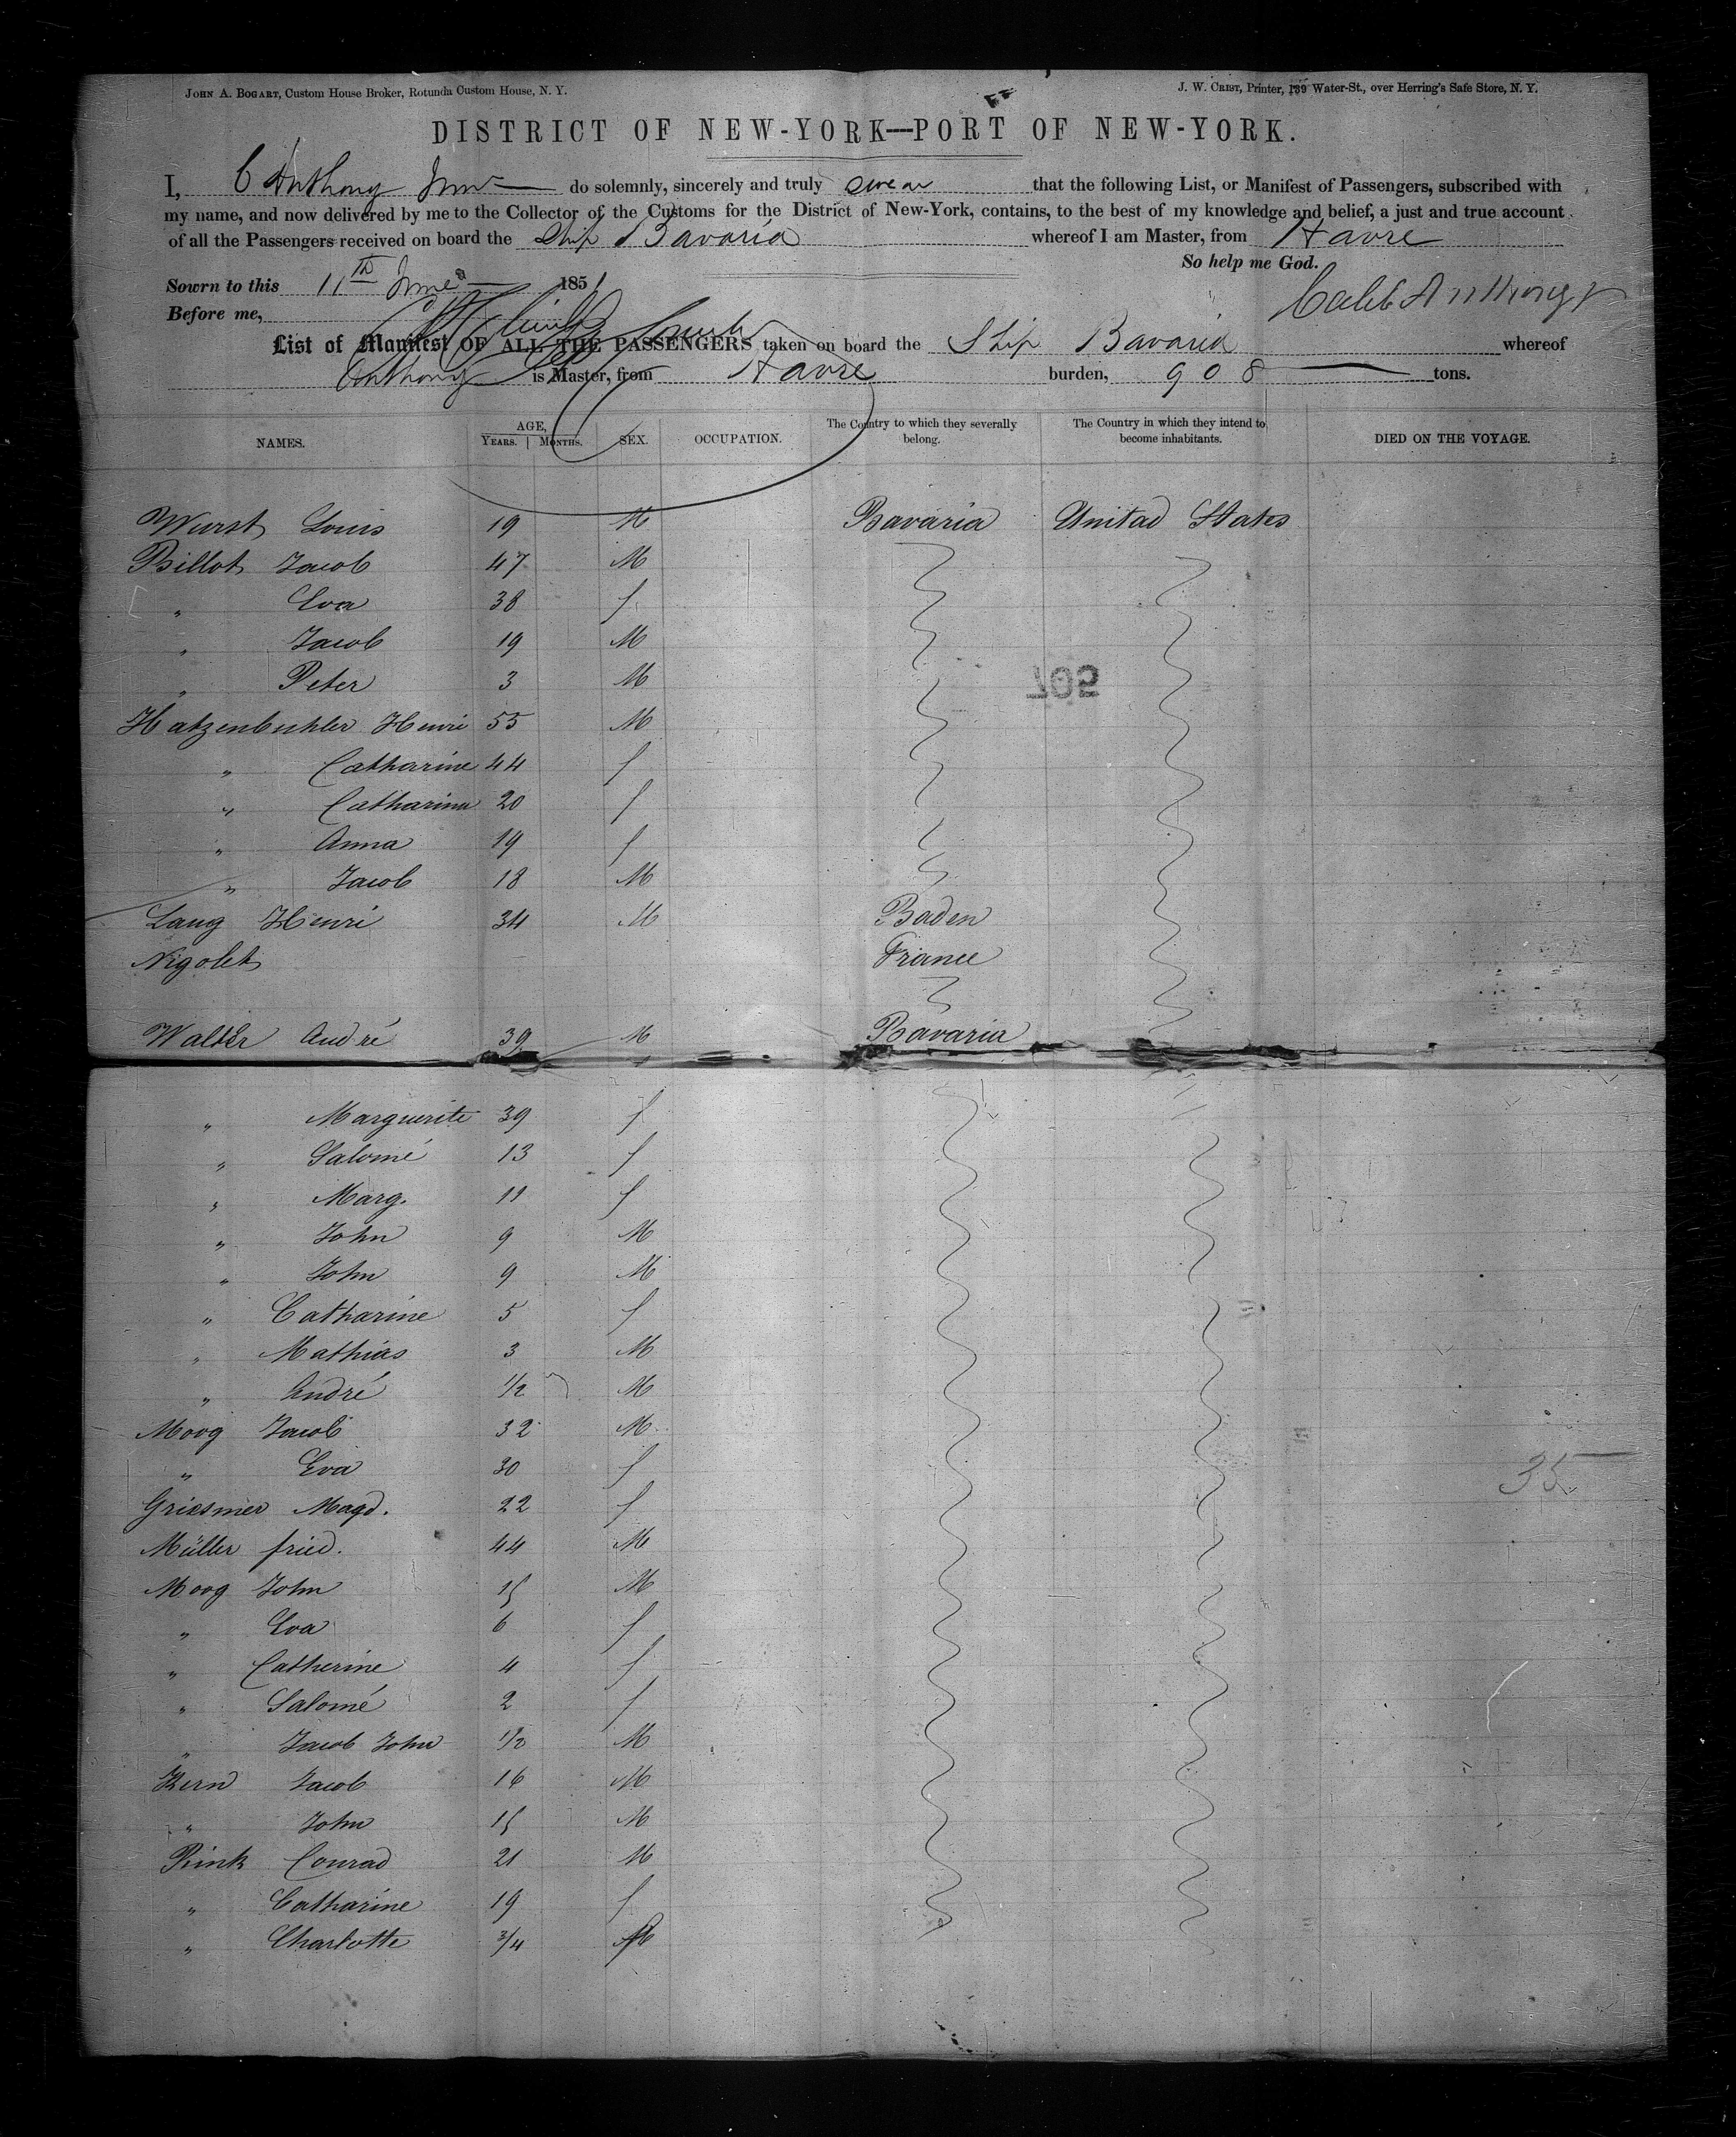 JOHN A. BOGART, Custom House Broker, Rotunda Custom House, N. Y.
J. W. CRIST, Printer, 139 Water-St., over Herring's Safe Store, N. Y.
DISTRICT OF NEW-YORK—PORT OF NEW-YORK.
I, C Anthony Junr do solemnly, sincerely and truly swear that the following List, or Manifest of Passengers, subscribed with
my name, and now delivered by me to the Collector of the Customs for the District of New-York, contains, to the best of my knowledge and belief, a just and true account
of all the Passengers received on board the Ship Bavaria whereof I am Master, from Havre
So help me God.
Sowrn to this 11th June 1851
Caleb Anthony Jr
Before me,
List of Manifest OF ALL THE PASSENGERS taken on board the Ship Bavaria whereof
Anthony is Master, from Havre burden, 908 tons.
NAMES. AGE, YEARS. MONTHS. SEX. OCCUPATION. The Country to which they severally belong. The Country in which they intend to become inhabitants. DIED ON THE VOYAGE.
Wurst Louis 19 M Bavaria United States
Billot Jacob 47 M
" Eva 38 f
" Jacob 19 M
" Peter 3 M
705
Hatzenbuhler Henri 55 M
" Catharine 44 f
" Catharina 20 f
" Anna 19 f
" Jacob 18 M
Lang Henri 34 M Baden
Nigolet France
Walter André 39 M Bavaria
" Marguerite 39 f
" Salomé 13 f
" Marg. 11 f
" John 9 M
" John 9 M
" Catharine 5 f
" Mathias 3 M
" André 1/2 M
Moog Jacob 32 M
" Eva 30 f
35
Griesmer Magd. 22 f
Müller fried. 44 M
Moog John 15 M
" Eva 6 f
" Catherine 4 f
" Salomé 2 f
" Jacob John 1/2 M
Kern Jacob 16 M
" John 15 M
Rink Conrad 21 M
" Catharine 19 f
" Charlotte 3/4 f